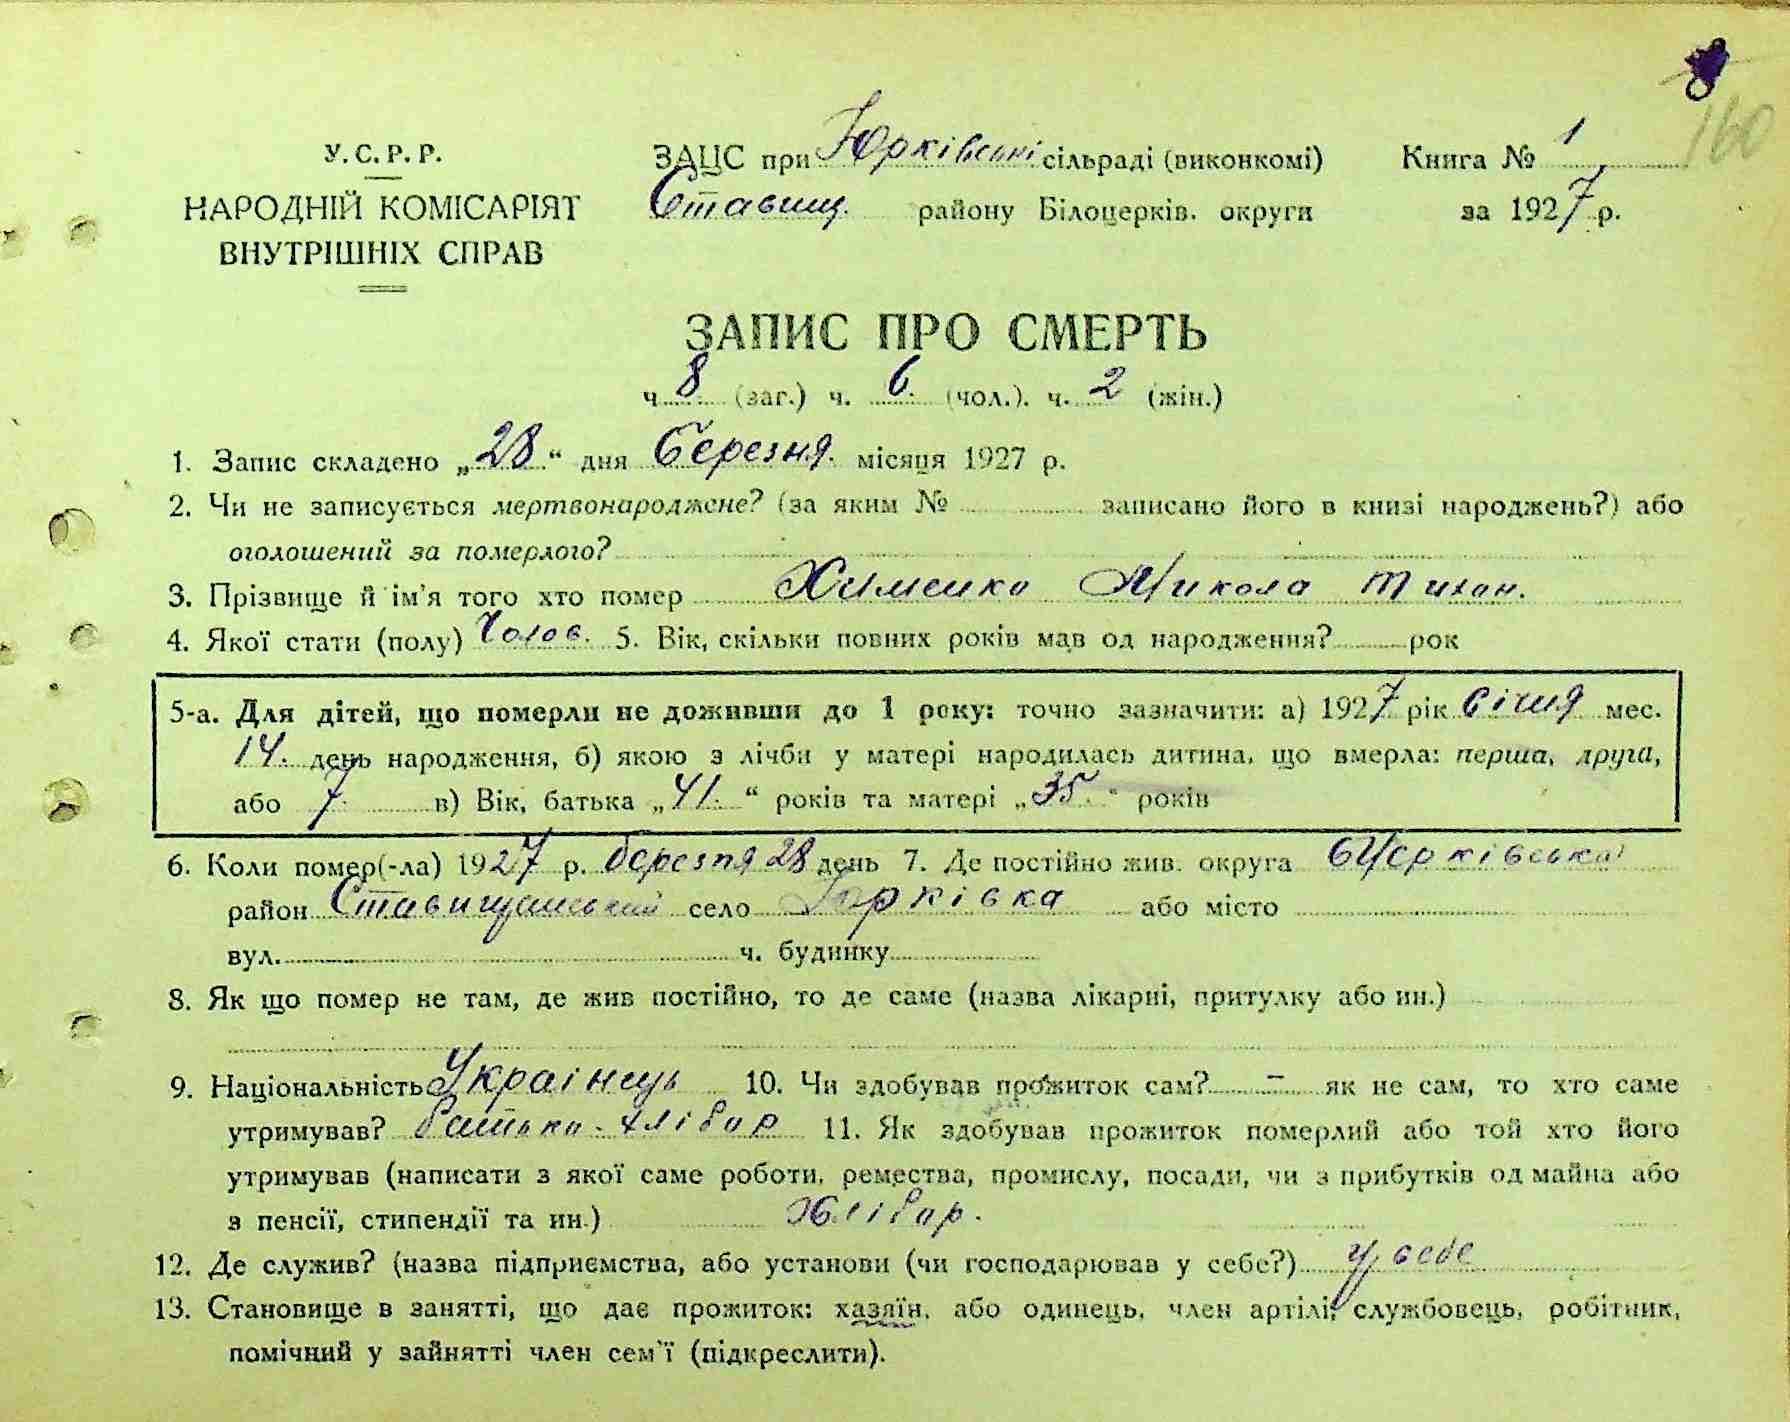 160
У. С. Р. Р.
НАРОДНІЙ КОМІСАРІЯТ
ВНУТРІШНІХ СПРАВ
ЗАЦС при Юрківські сільраді (виконкомі)
Книга № 1
Ставищ. району Білоцерків. округи
за 1927 р.
ЗАПИС ПРО СМЕРТЬ
ч 8 (заг.) ч. 6. (чол.). ч. 2 (жін.)
1. Запис складено „28“ дня Березня. місяця 1927 р.
2. Чи не записується мертвонароджене? (за яким № записано його в книзі народжень?) або
оголошений за померлого?
3. Прізвище й ім'я того хто помер Хименко Микола Тихон.
4. Якої стати (полу) Чолов. 5. Вік, скільки повних років мав од народження? рок
5-а. Для дітей, що померли не доживши до 1 року: точно зазначити: а) 1927 рік січня мес.
14. день народження, б) якою з лічби у матері народилась дитина, що вмерла: перша, друга,
або 7. в) Вік, батька „41.“ років та матері „35.“ років
6. Коли помер(-ла) 1927 р. березня 28 день 7. Де постійно жив. округа БЦерківська
район Ставищанський село Юрківка або місто
вул. ч. будинку
8. Як що помер не там, де жив постійно, то де саме (назва лікарні, притулку або ин.)
9. Національність Украінець 10. Чи здобував прожиток сам? – як не сам, то хто саме
утримував? батько-хлібор 11. Як здобував прожиток померлий або той хто його
утримував (написати з якої саме роботи, ремества, промислу, посади, чи з прибутків од майна або
з пенсії, стипендії та ин.) Хлібор.
12. Де служив? (назва підприємства, або установи (чи господарював у себе?) у себе
13. Становище в занятті, що дає прожиток: хазяїн, або одинець, член артілі, службовець, робітник,
помічний у зайнятті член сем'ї (підкреслити).